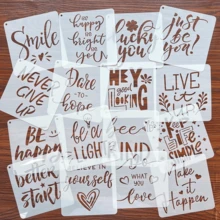 Smile
so happy
so bright
so you
Lucky
you
just
be
you!
NEVER
GIVE
UP
Dare
to
HEY
good
looking
LIVE
it
Be
happy
be a
LIGHT
bee
KIND
SIMPLE
better
start
believe in
yourself
WHAT
YOU
Love
make it
Happen